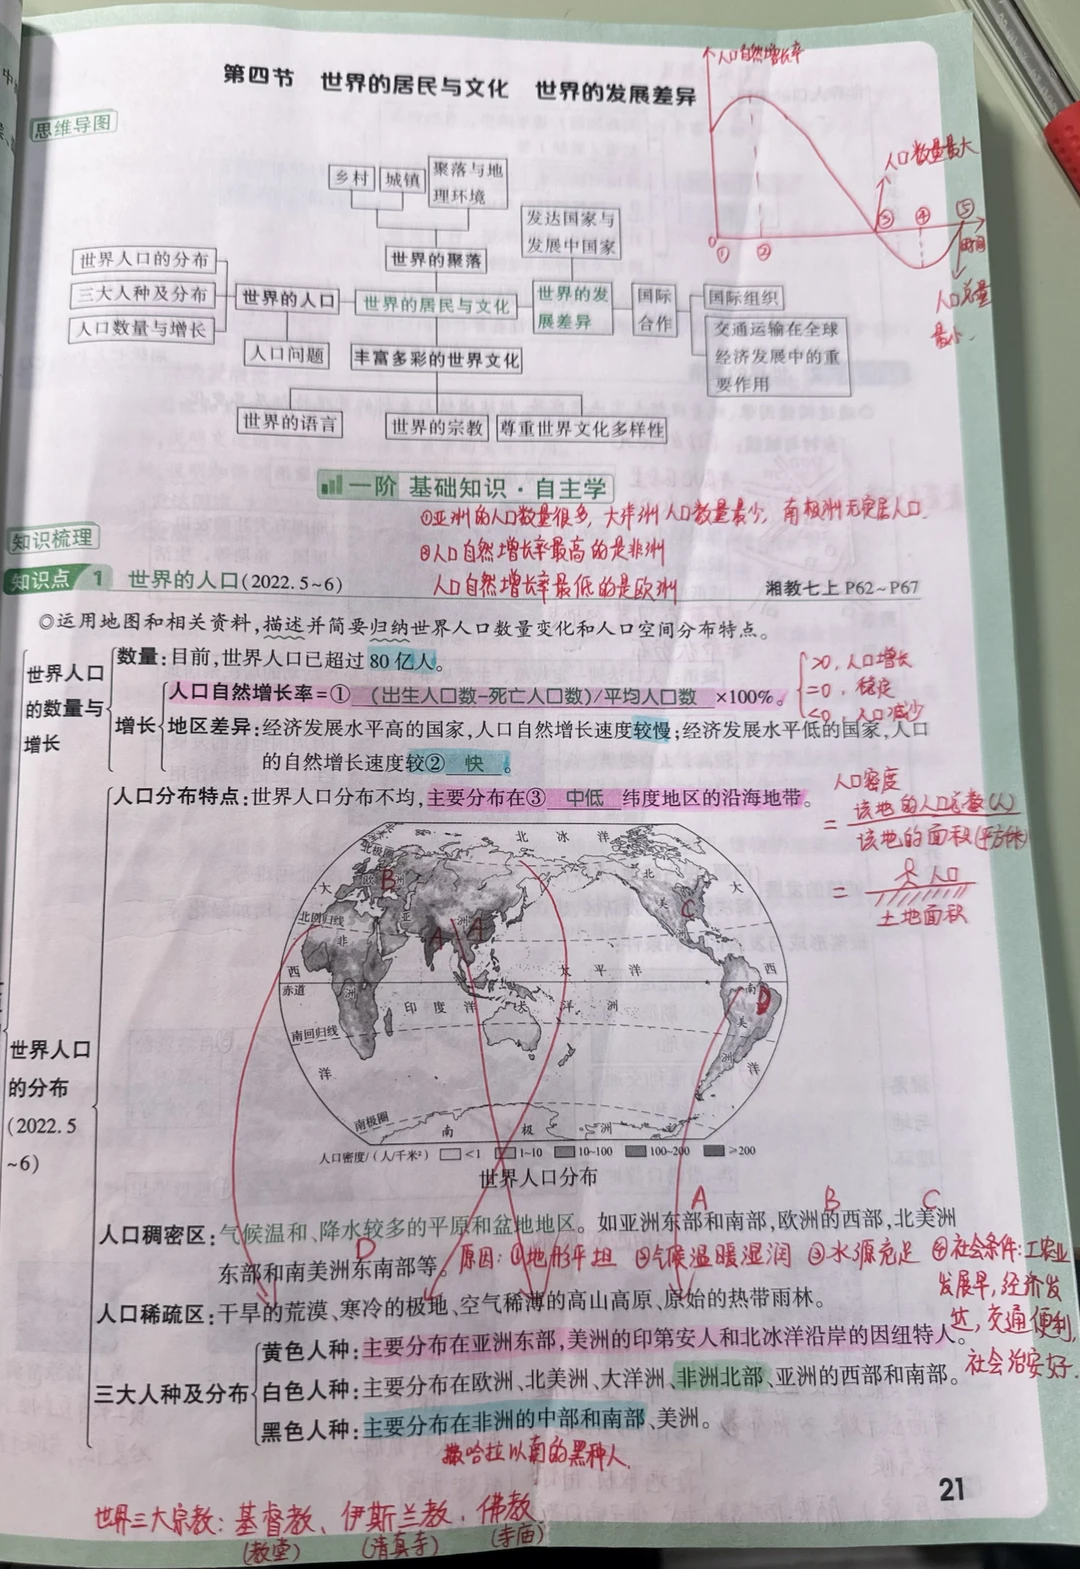 第四节 世界的居民与文化 世界的发展差异
思维导图
人口自然增长率
人口数量最大
0
①
②
③
④
⑤
时间
人口总量
最小.
乡村
城镇
聚落与地
理环境
发达国家与
发展中国家
世界的聚落
世界人口的分布
三大人种及分布
人口数量与增长
世界的人口
世界的居民与文化
世界的发
展差异
国际
合作
国际组织
交通运输在全球
经济发展中的重
要作用
人口问题
丰富多彩的世界文化
世界的语言
世界的宗教
尊重世界文化多样性
一阶 基础知识·自主学
①亚洲的人口数量很多, 大洋洲人口数量最少, 南极洲无定居人口.
②人口自然增长率最高的是非洲
人口自然增长率最低的是欧洲
知识梳理
知识点 1 世界的人口(2022.5~6)
湘教七上 P62~P67
◎运用地图和相关资料,描述并简要归纳世界人口数量变化和人口空间分布特点。
世界人口
的数量与
增长
数量:目前,世界人口已超过 80 亿人。
增长
人口自然增长率=① (出生人口数-死亡人口数)/平均人口数 ×100%。
>0, 人口增长
=0, 稳定
<0, 人口减少
地区差异:经济发展水平高的国家,人口自然增长速度较慢;经济发展水平低的国家,人口
的自然增长速度较② 快 。
世界人口
的分布
(2022.5
~6)
人口分布特点:世界人口分布不均,主要分布在③ 中低 纬度地区的沿海地带。
人口密度
= 该地的人口总数(人)
该地的面积(平方千米)
= 人口
土地面积
北 冰 洋
北极圈
大
欧 洲
B
亚 洲
A
A
北 美
C
大
北回归线
非 洲
西
太 平 洋
西
赤道
印 度 洋
大 洋 洲
南 美 洲
D
南回归线
洋
洋
南极圈
南 极 洲
人口密度/(人/千米²) <1 1~10 10~100 100~200 ≥200
世界人口分布
A B C
人口稠密区:气候温和、降水较多的平原和盆地地区。如亚洲东部和南部,欧洲的西部,北美洲
D
东部和南美洲东南部等。
原因: ①地形平坦 ②气候温暖湿润 ③水源充足 ④社会条件:工农业
发展早, 经济发
达, 交通便利,
社会治安好.
人口稀疏区:干旱的荒漠、寒冷的极地、空气稀薄的高山高原、原始的热带雨林。
三大人种及分布
黄色人种:主要分布在亚洲东部,美洲的印第安人和北冰洋沿岸的因纽特人。
白色人种:主要分布在欧洲、北美洲、大洋洲、非洲北部、亚洲的西部和南部。
黑色人种:主要分布在非洲的中部和南部、美洲。
撒哈拉以南的黑种人
21
世界三大宗教: 基督教、伊斯兰教、佛教
(教堂) (清真寺) (寺庙)